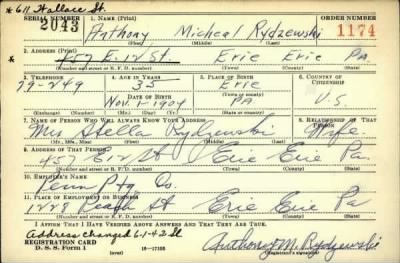 * 611 Wallace St.
SERIAL NUMBER 1. NAME (Print) ORDER NUMBER
2043 Anthony Micheal Rydzewski 1174
(First) (Middle) (Last)
2. ADDRESS (Print)
* 457 E. 12 St. Erie Erie Pa.
(Number and street or R. F. D. number) (Town) (County) (State)
3. TELEPHONE 4. AGE IN YEARS 5. PLACE OF BIRTH 6. COUNTRY OF CITIZENSHIP
29-249 35 Erie
DATE OF BIRTH (Town or county)
Nov. 1-1904 PA U.S.
(Exchange) (Number) (Mo.) (Day) (Yr.) (State or country)
7. NAME OF PERSON WHO WILL ALWAYS KNOW YOUR ADDRESS 8. RELATIONSHIP OF THAT PERSON
Mrs Stella Rydzewski Wife
(Mr., Mrs., Miss) (First) (Middle) (Last)
9. ADDRESS OF THAT PERSON
457 E 12 St Erie Erie Pa.
(Number and street or R. F. D. number) (Town) (County) (State)
10. EMPLOYER'S NAME
Penn Ptg Co.
11. PLACE OF EMPLOYMENT OR BUSINESS
1228 Peach St Erie Erie Pa
(Number and street or R. F. D. number) (Town) (County) (State)
I AFFIRM THAT I HAVE VERIFIED ABOVE ANSWERS AND THAT THEY ARE TRUE.
Address changed 6-1-42
REGISTRATION CARD
D. S. S. Form 1 (over) 16-17105 Anthony M. Rydzewski
(Registrant's signature)